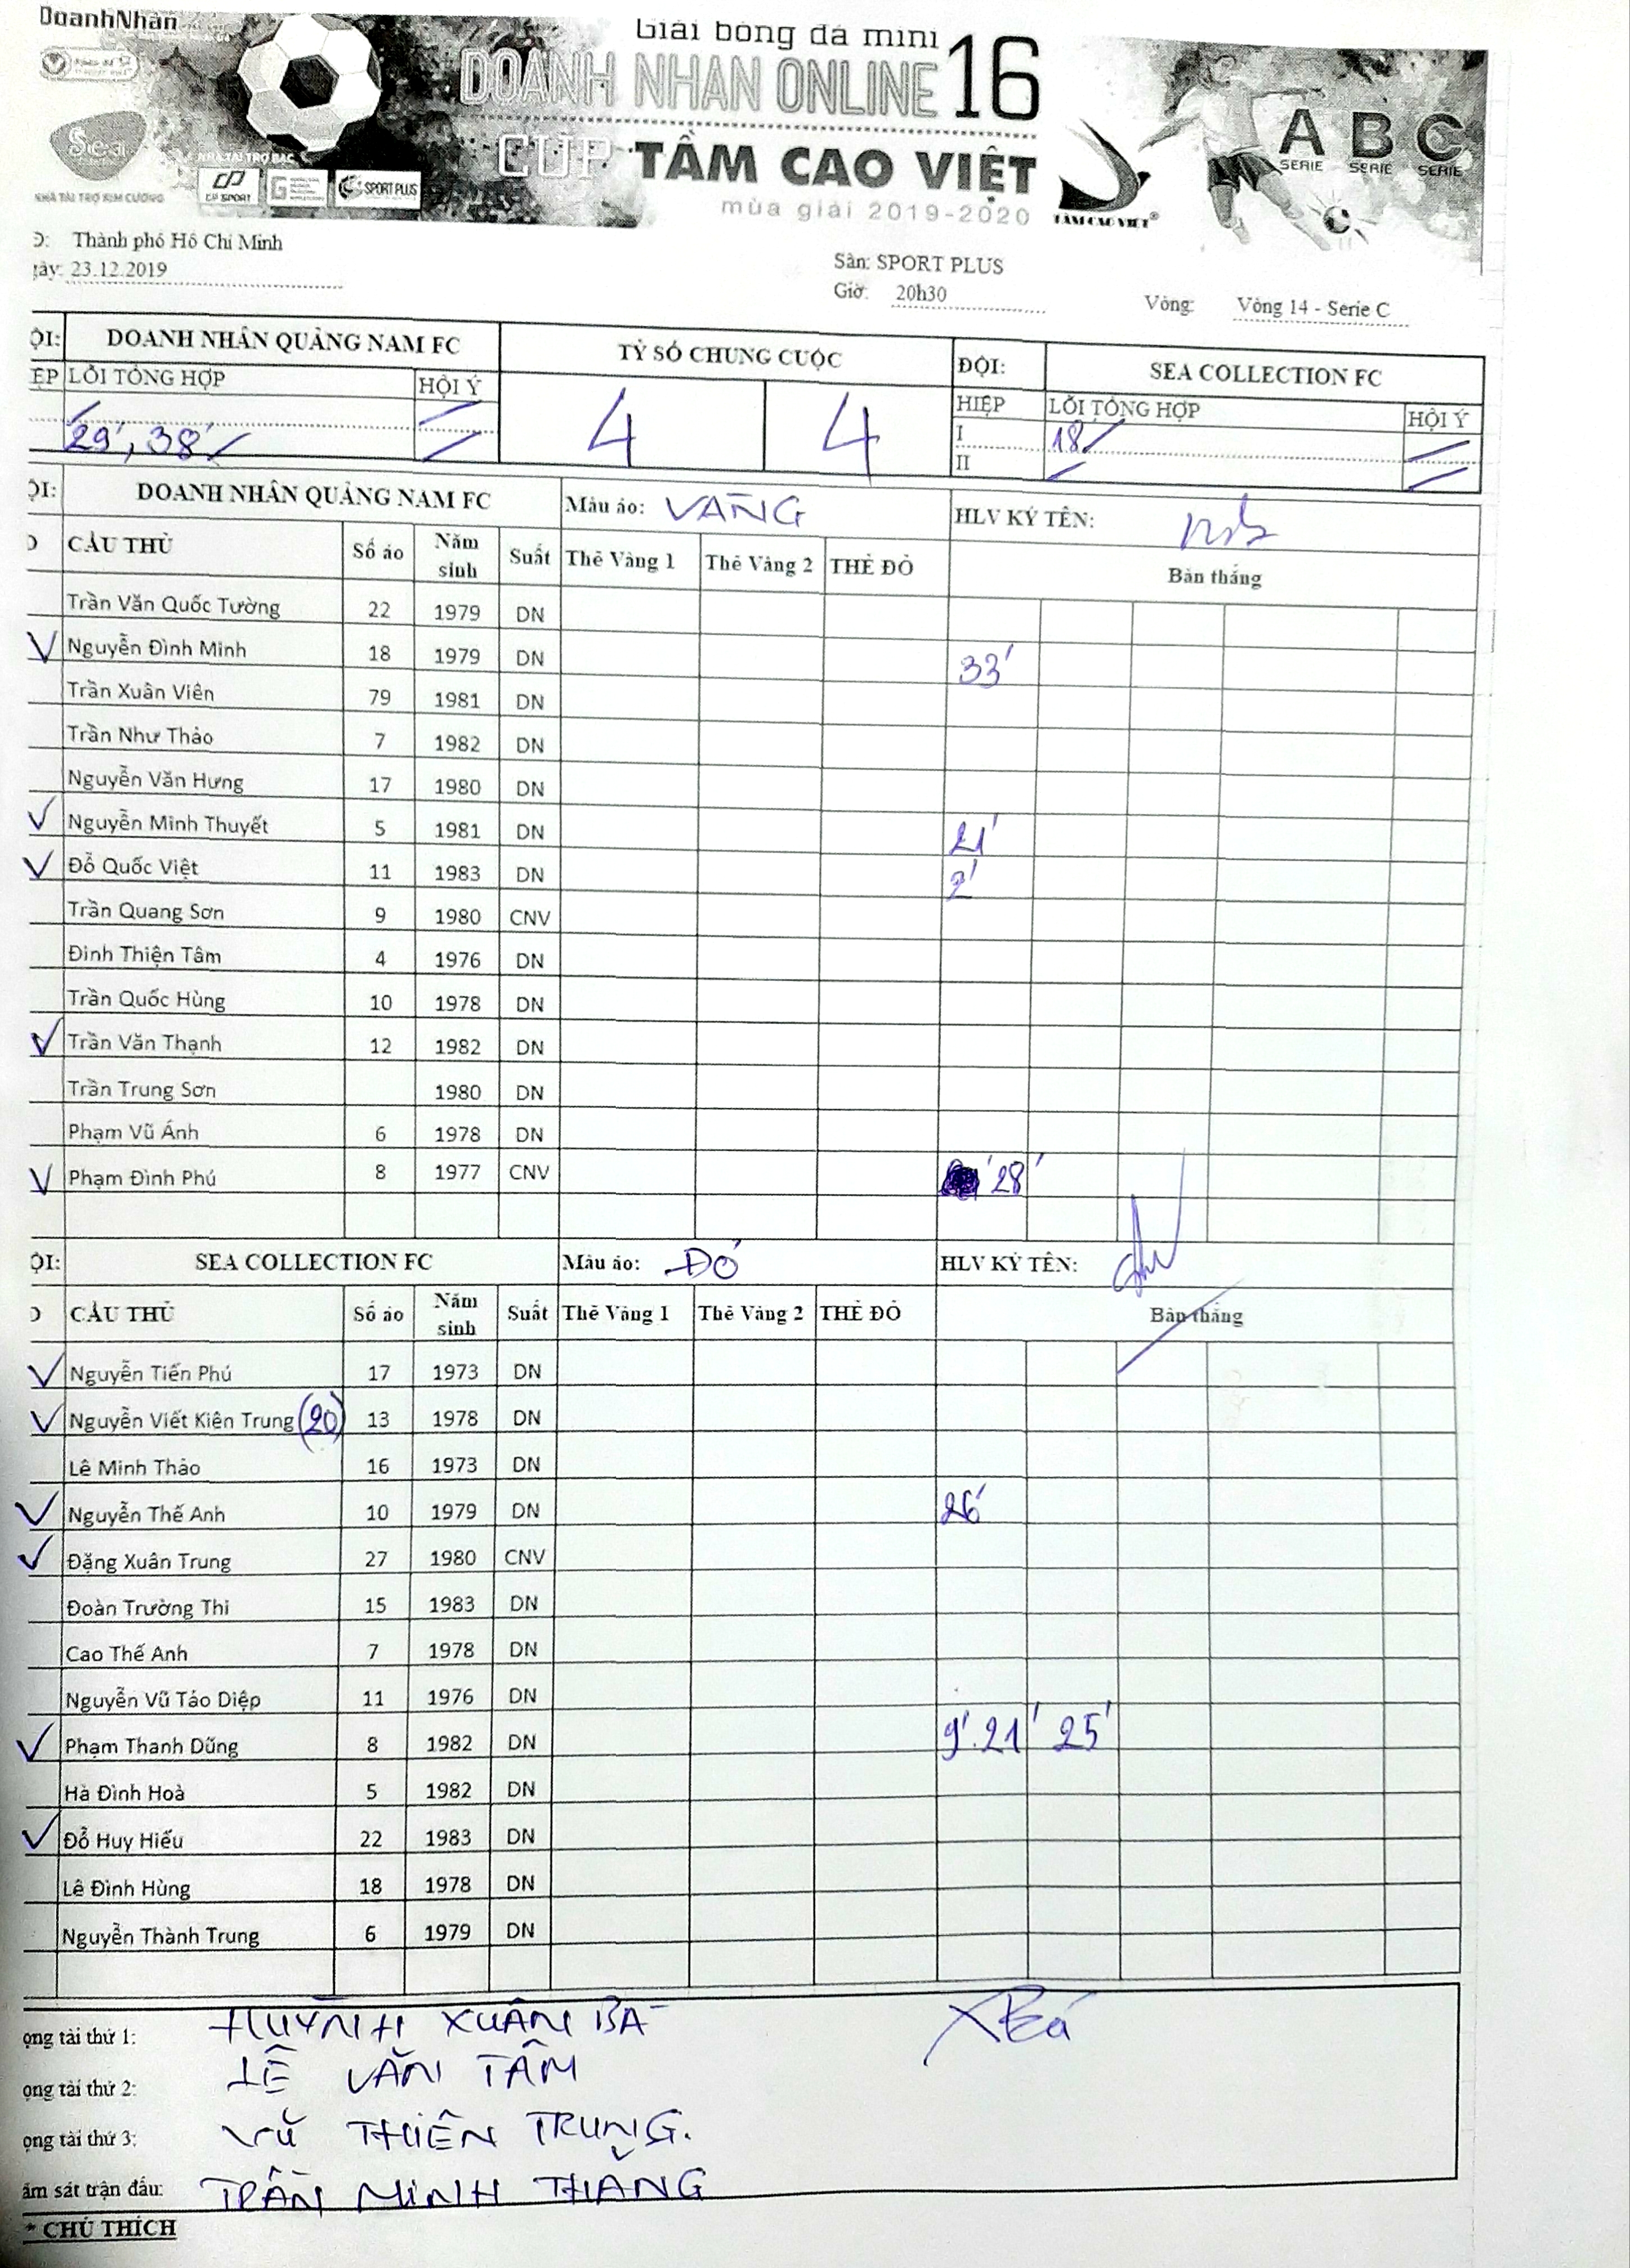 DoanhNhân
Giải bóng đá mini
DOANH NHAN ONLINE 16
CUP TẦM CAO VIỆT
mùa giải 2019-2020
TẦM CAO VIỆT®
A B C
SERIE SERIE SERIE
NHÀ TÀI TRỢ BẠC
CP SPORT
SPORT PLUS
NHÀ TÀI TRỢ KIM CƯƠNG
Thành phố Hồ Chí Minh
gày: 23.12.2019
Sân: SPORT PLUS
Giờ: 20h30
Vòng: Vòng 14 - Serie C
ỘI: DOANH NHÂN QUẢNG NAM FC TỶ SỐ CHUNG CUỘC ĐỘI: SEA COLLECTION FC
ỆP LỖI TỔNG HỢP HỘI Ý 4 4 HIỆP LỖI TỔNG HỢP HỘI Ý
I 18'
29', 38' II
ỘI: DOANH NHÂN QUẢNG NAM FC Màu áo: VÀNG HLV KÝ TÊN:
CẦU THỦ Số áo Năm sinh Suất Thẻ Vàng 1 Thẻ Vàng 2 THẺ ĐỎ Bàn thắng
Trần Văn Quốc Tường 22 1979 DN
Nguyễn Đình Minh 18 1979 DN 33'
Trần Xuân Viên 79 1981 DN
Trần Như Thảo 7 1982 DN
Nguyễn Văn Hưng 17 1980 DN
Nguyễn Minh Thuyết 5 1981 DN 21'
Đỗ Quốc Việt 11 1983 DN 2'
Trần Quang Sơn 9 1980 CNV
Đinh Thiện Tâm 4 1976 DN
Trần Quốc Hùng 10 1978 DN
Trần Văn Thạnh 12 1982 DN
Trần Trung Sơn 1980 DN
Phạm Vũ Ánh 6 1978 DN
Phạm Đình Phú 8 1977 CNV 28'
ỘI: SEA COLLECTION FC Màu áo: ĐỎ HLV KÝ TÊN:
CẦU THỦ Số áo Năm sinh Suất Thẻ Vàng 1 Thẻ Vàng 2 THẺ ĐỎ Bàn thắng
Nguyễn Tiến Phú 17 1973 DN
Nguyễn Viết Kiên Trung (20) 13 1978 DN
Lê Minh Thảo 16 1973 DN
Nguyễn Thế Anh 10 1979 DN 26'
Đặng Xuân Trung 27 1980 CNV
Đoàn Trường Thi 15 1983 DN
Cao Thế Anh 7 1978 DN
Nguyễn Vũ Táo Diệp 11 1976 DN
Phạm Thanh Dũng 8 1982 DN 9' 21' 25'
Hà Đình Hoà 5 1982 DN
Đỗ Huy Hiếu 22 1983 DN
Lê Đình Hùng 18 1978 DN
Nguyễn Thành Trung 6 1979 DN
ọng tài thứ 1: HUỲNH XUÂN BÁ XBá
ọng tài thứ 2: LÊ VĂN TÂM
ọng tài thứ 3: VŨ THIÊN TRUNG.
ám sát trận đấu: TRẦN MINH THẮNG
* CHÚ THÍCH